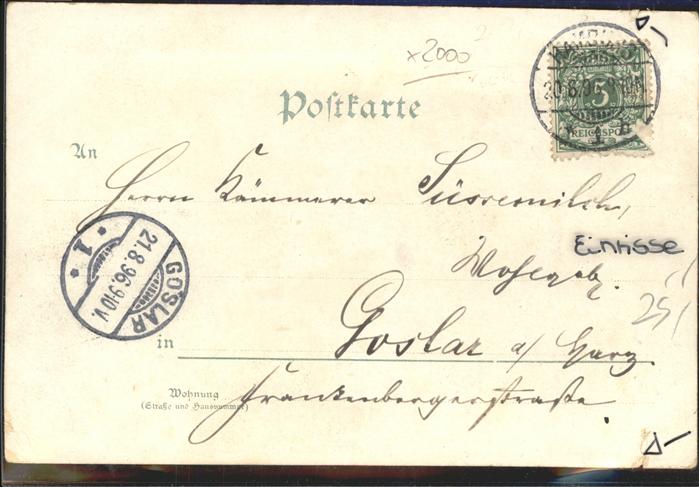 x2000
Postkarte
20.8.96
5
REICHSPOST
An
Herrn Kämmerer Süssemilch,
Einrisse
21.8.96.9-10V.
GOSLAR
* 1 *
25
in Goslar a/ Harz
Wohnung
(Straße und Hausnummer)
Frankenbergerstraße